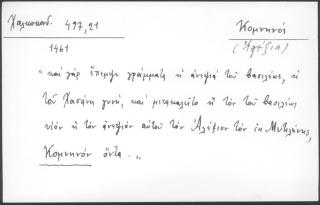 Χαλκοκονδ. 497,21
Κομνηνός
(Ἀλέξιος)
1461
" καὶ γὰρ ἔπεμψε γράμματα ἡ ἀνεψιὰ τοῦ βασιλέως, ἡ
τοῦ Χασάνη γυνή, καὶ μετεκαλεῖτο ἢ τὸν τοῦ βασιλέως
υἱὸν ἢ τὸν ἀνεψιὸν αὐτοῦ τὸν Ἀλέξιον τὸν ἐκ Μυτιλήνης,
Κομνηνὸν ὄντα . „